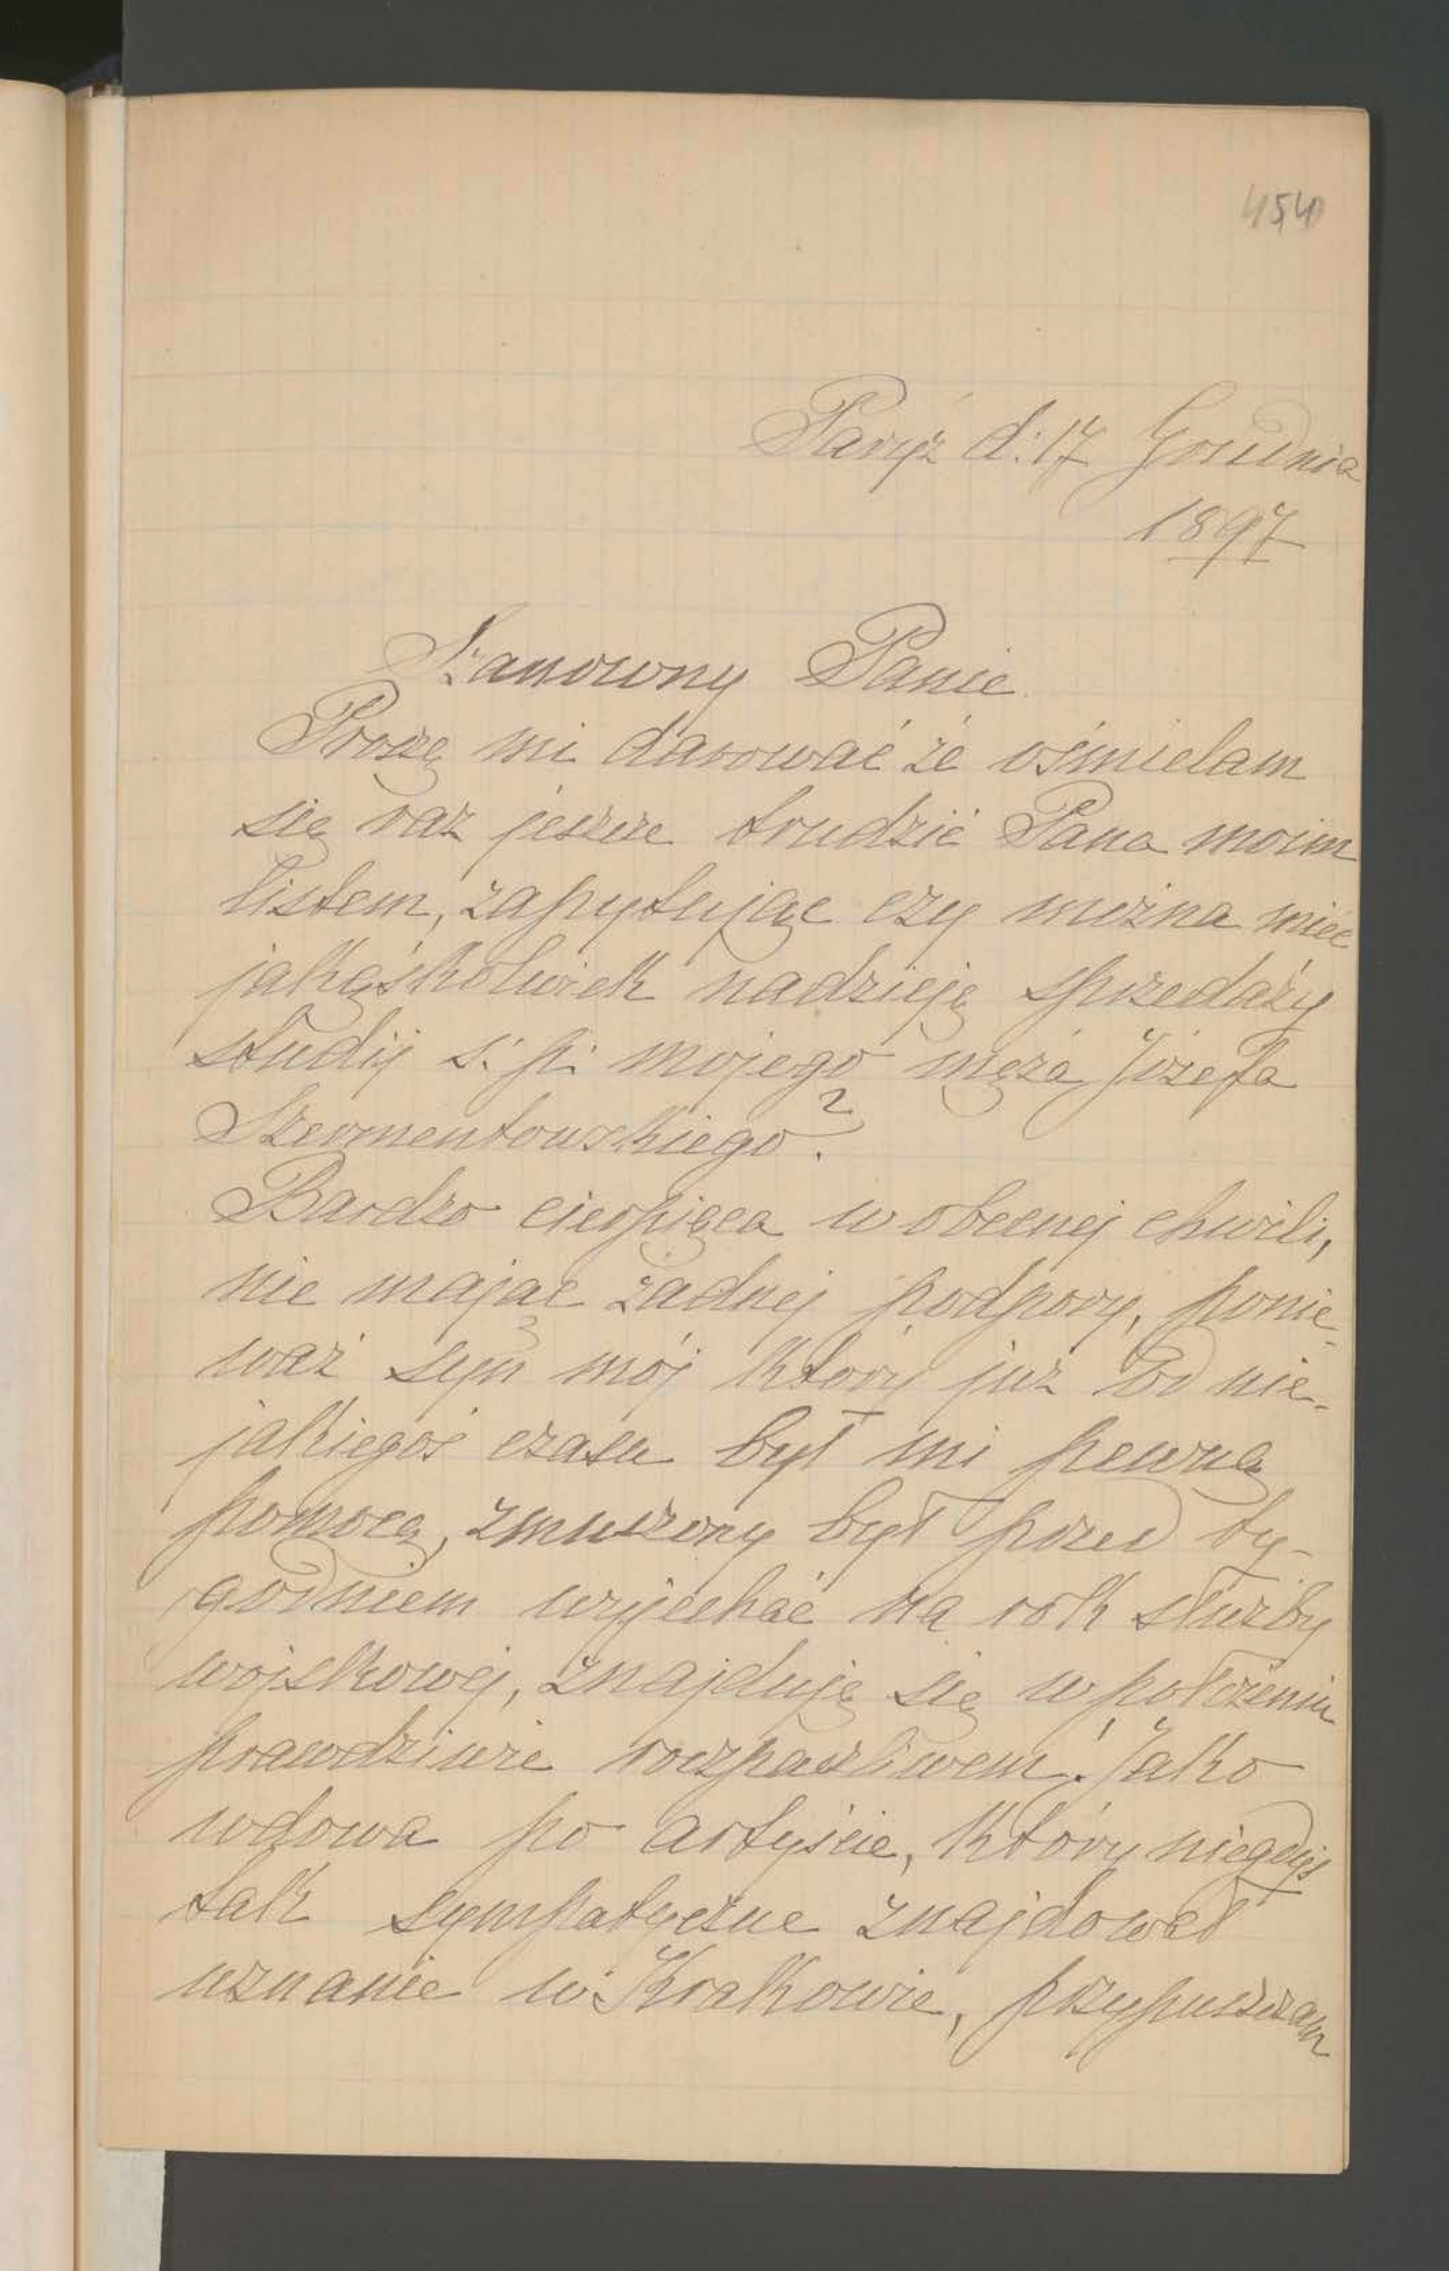 454
Paryż d: 17 Grudnia
1897
Szanowny Panie
Proszę mi darować że ośmielam
się raz jeszcze trudzić Pana moim
listem, zapytując czy można mieć
jakąśkolwiek nadzieję sprzedaży
studij ś: p: mojego męża Józefa
Szermentowskiego?
Bardzo cierpiąca w obecnej chwili,
nie mając żadnej podpory, ponie-
waż syn mój który już od nie-
jakiegoś czasu był mi pewną
pomocą, zmuszony był przed ty-
godniem wyjechać na rok służby
wojskowej, znajduję się w położeniu
prawdziwie rozpaczliwem! Jako
wdowa po artyście, który niegdyś
tak sympatyczne znajdował
uznanie w Krakowie, przypuszczam